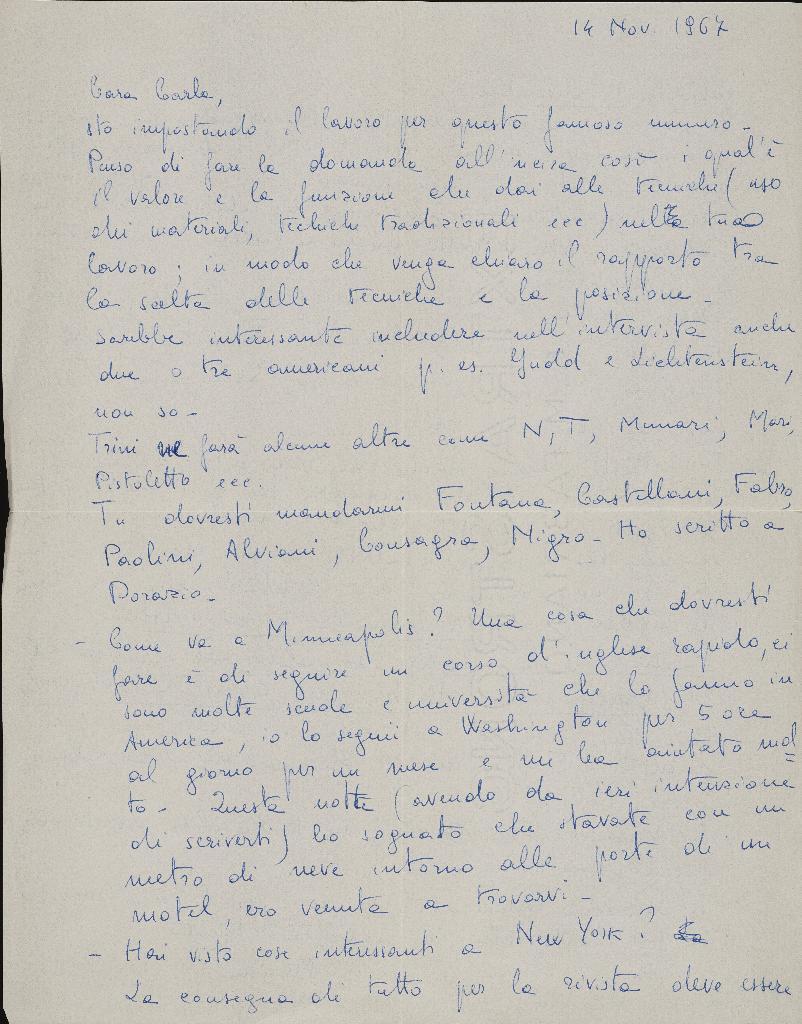 14 Nov. 1967
Cara Carla,
sto impostando il lavoro per questo famoso numero -
Penso di fare la domanda all'incirca così : qual'è
il valore e la funzione che dai alle tecniche (uso
dei materiali, techiche tradizionali ecc) nella tuo
lavoro ; in modo che venga chiaro il rapporto tra
la scelta delle tecniche e la posizione -
Sarebbe interessante includere nell'intervista anche
due o tre americani p. es. Judd e Lichtenstein,
non so -
Trini ne farà alcune altre come N, T, Munari, Mari,
Pistoletto ecc.
Tu dovresti mandarmi Fontana, Castellani, Fabro,
Paolini, Alviani, Consagra, Nigro - Ho scritto a
Dorazio -
- Come va a Minneapolis? Una cosa che dovresti
fare è di seguire un corso d'inglese rapido, ci
sono molte scuole e università che lo fanno in
America, io lo seguii a Washington per 5 ore
al giorno per un mese e mi ha aiutato mol
to - Questa notte (avendo da ieri intenzione
di scriverti) ho sognato che stavate con un
metro di neve intorno alle porte di un
motel, ero venuta a trovarvi -
- Hai visto cose interessanti a New York?
La consegna di tutto per la rivista deve essere